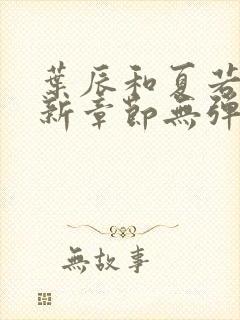 葉辰和夏若
新章節無彈
無故事